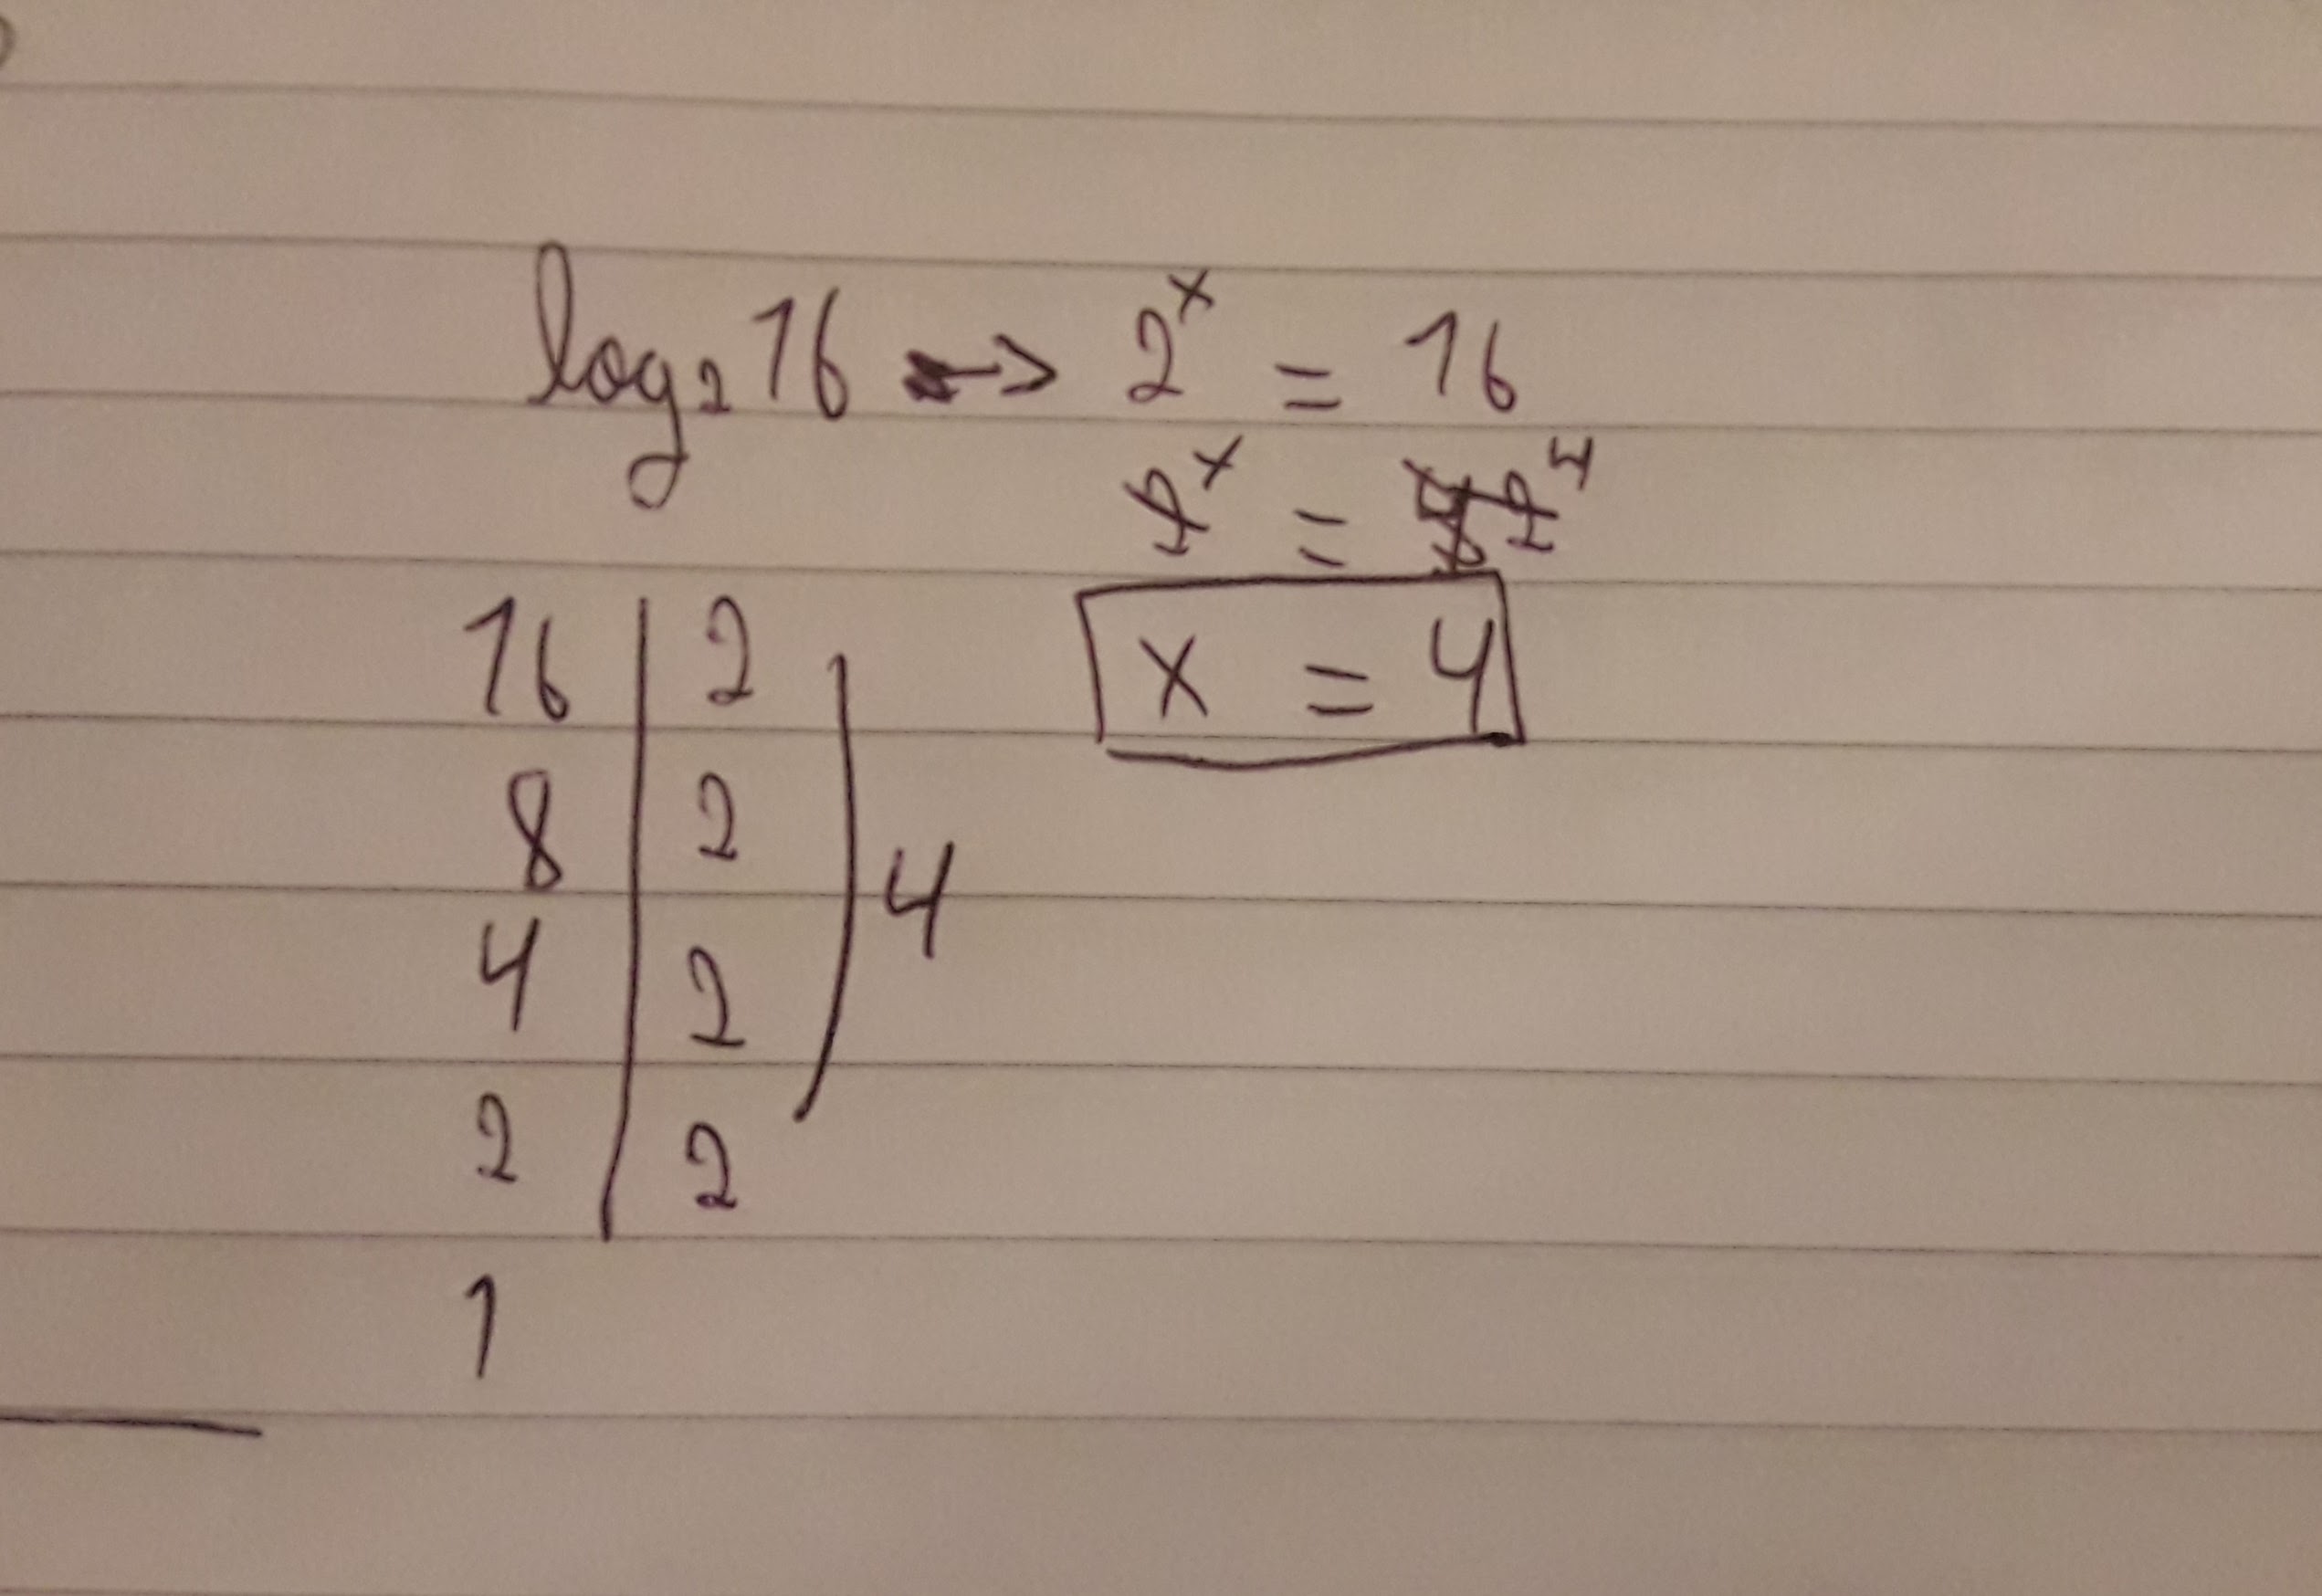 log₂ 16 -> 2ˣ = 16
2ˣ = 2⁴
x = 4
16 | 2
8 | 2
4 | 2
2 | 2
4
1